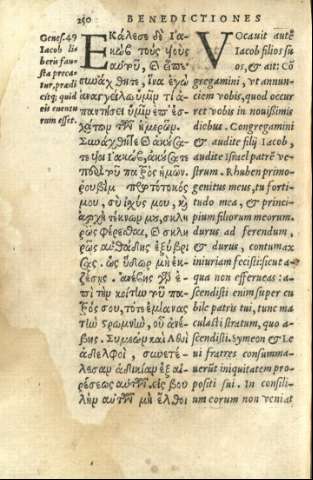 250 BENEDICTIONES
Genes. 49
Iacob li
beris fau
sta preca
tur, prædi
citq; quid
eis euentu
rum esset.
ΕΚάλεσε δὲ Ἰα-
κὼβ τοὺς ὑοὺς
αὐτοῦ, καὶ εἶπε·
συνάχθητε, ἵνα ἐγὼ
ἀναγγείλω ὑμῖν τί ἀ-
παντήσει ὑμῖν ἐπ' ἐσ-
χάτων τῶν ἡμερῶν.
Συνάχθητε καὶ ἀκούσα-
τε ὑοὶ Ἰακὼβ, ἀκούσατε
τοῦ πατρὸς ὑμῶν.
ρουβὶμ πρωτότοκος
μου, σὺ ἰχύς μου, καὶ
ἀρχὴ τέκνων μου, σκλη-
ρὸς φέρεσθαι, καὶ σκλη-
ρῶς αὐθάδης ἐξύβρι-
σας. ὡς ὕδωρ μὴ ἐκ-
ζέσης. ἀνέβης γὰρ ἐ-
πὶ τὴν κοίτην τοῦ πα-
τρός σου, τότε ἐμίανας
τὴν στρωμνὴν, οὗ ἀνέ-
βης. Συμεὼν καὶ Λευὶ
ἀδελφοὶ, συνετέ-
λεσαν ἀδικίαν ἐξ αἱ-
ρέσεως αὐτῶν. εἰς βου
λὴν αὐτῶν μὴ ἔλθοι
VOcauit autē
Iacob filios su
os, & ait: Cō
gregamini, ut annun-
ciem vobis, quod occur
ret vobis in nouißimis
diebus. Congregamini
& audite filij Iacob,
audite Israel patrē ve-
strum. Rhuben primo-
genitus meus, tu forti-
tudo mea, & princi-
pium filiorum meorum.
durus ad ferendum,
& durus, contumax
iniuriam fecisti: sicut a-
qua non efferueas: a-
scendisti enim super cu
bile patris tui, tunc ma
culasti stratum, quo a-
scendisti. Symeon & Le
ui fratres consumma-
uerūt iniquitatem pro-
positi sui. In consili-
um eorum non veniat